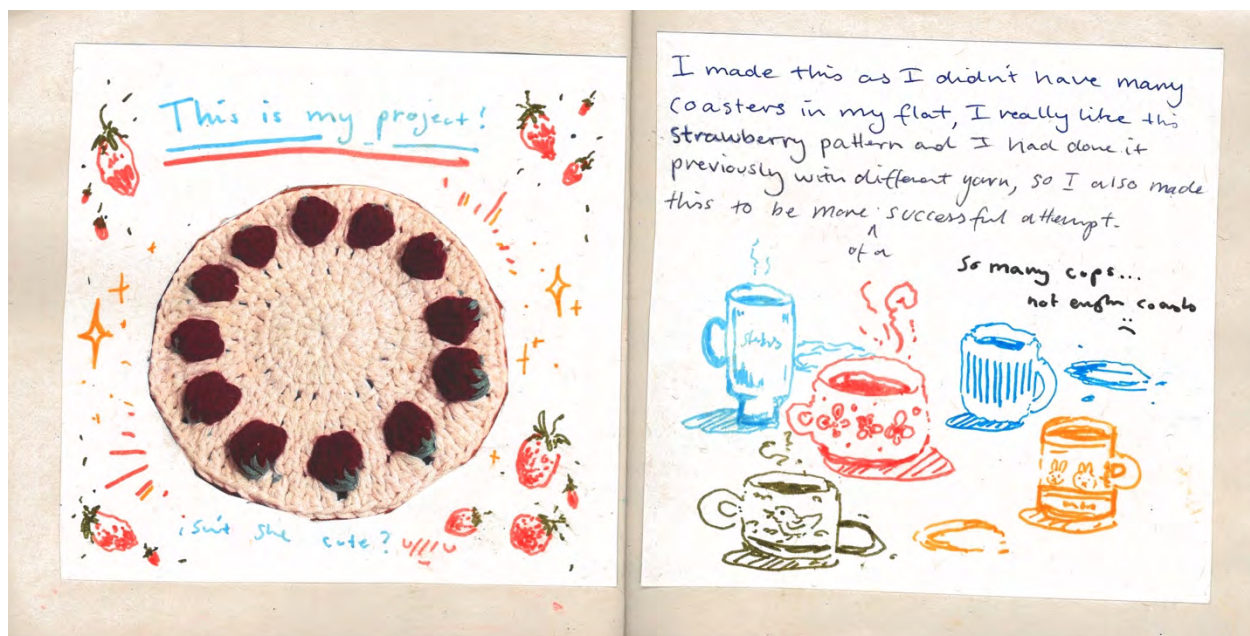 This is my project!
isn't she cute?
I made this as I didn't have many
coasters in my flat, I really like this
strawberry pattern and I had done it
previously with different yarn, so I also made
this to be more successful attempt.
of a
So many cups...
not enough